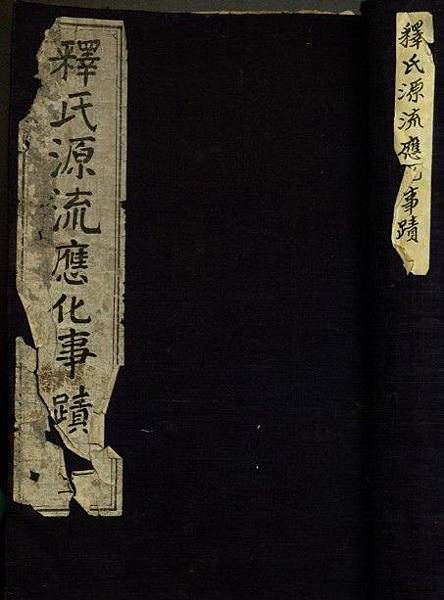 釋氏源流應化事蹟
釋氏源流應化事蹟